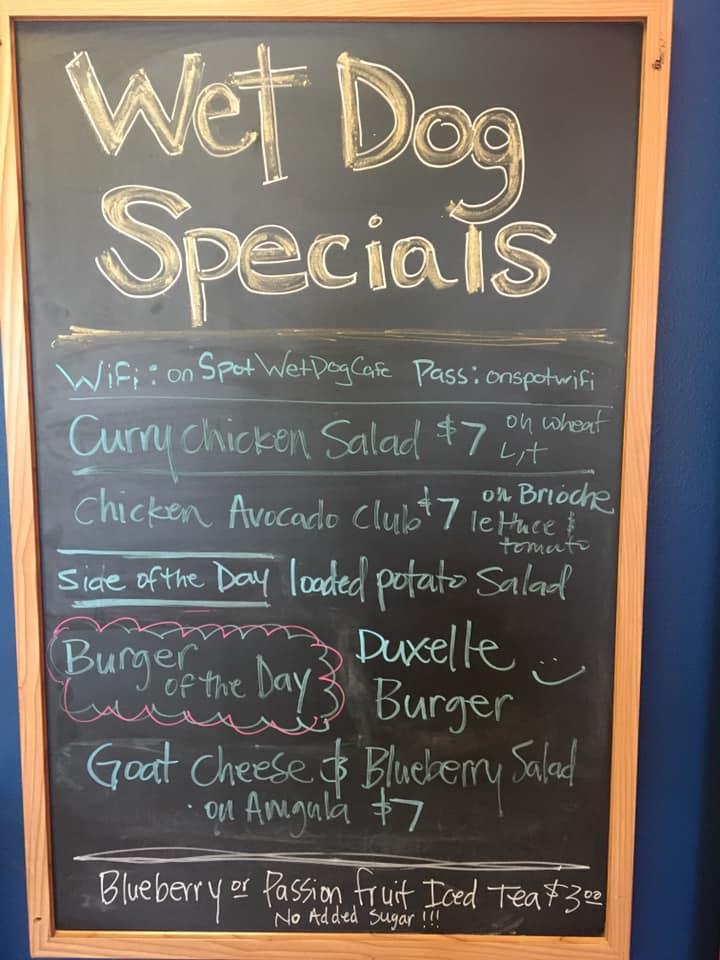 Wet Dog
Specials
Wifi: on Spot WetDogCafe Pass: onspotwifi
Curry Chicken Salad $7 on wheat
L,t
Chicken Avocado Club $7 on Brioche
lettuce &
tomato
Side of the Day loaded potato Salad
Burger
of the Day
Duxelle
Burger :)
Goat Cheese & Blueberry Salad
· on Arugula $7
Blueberry or Passion fruit Iced Tea $3.00
No Added Sugar!!!